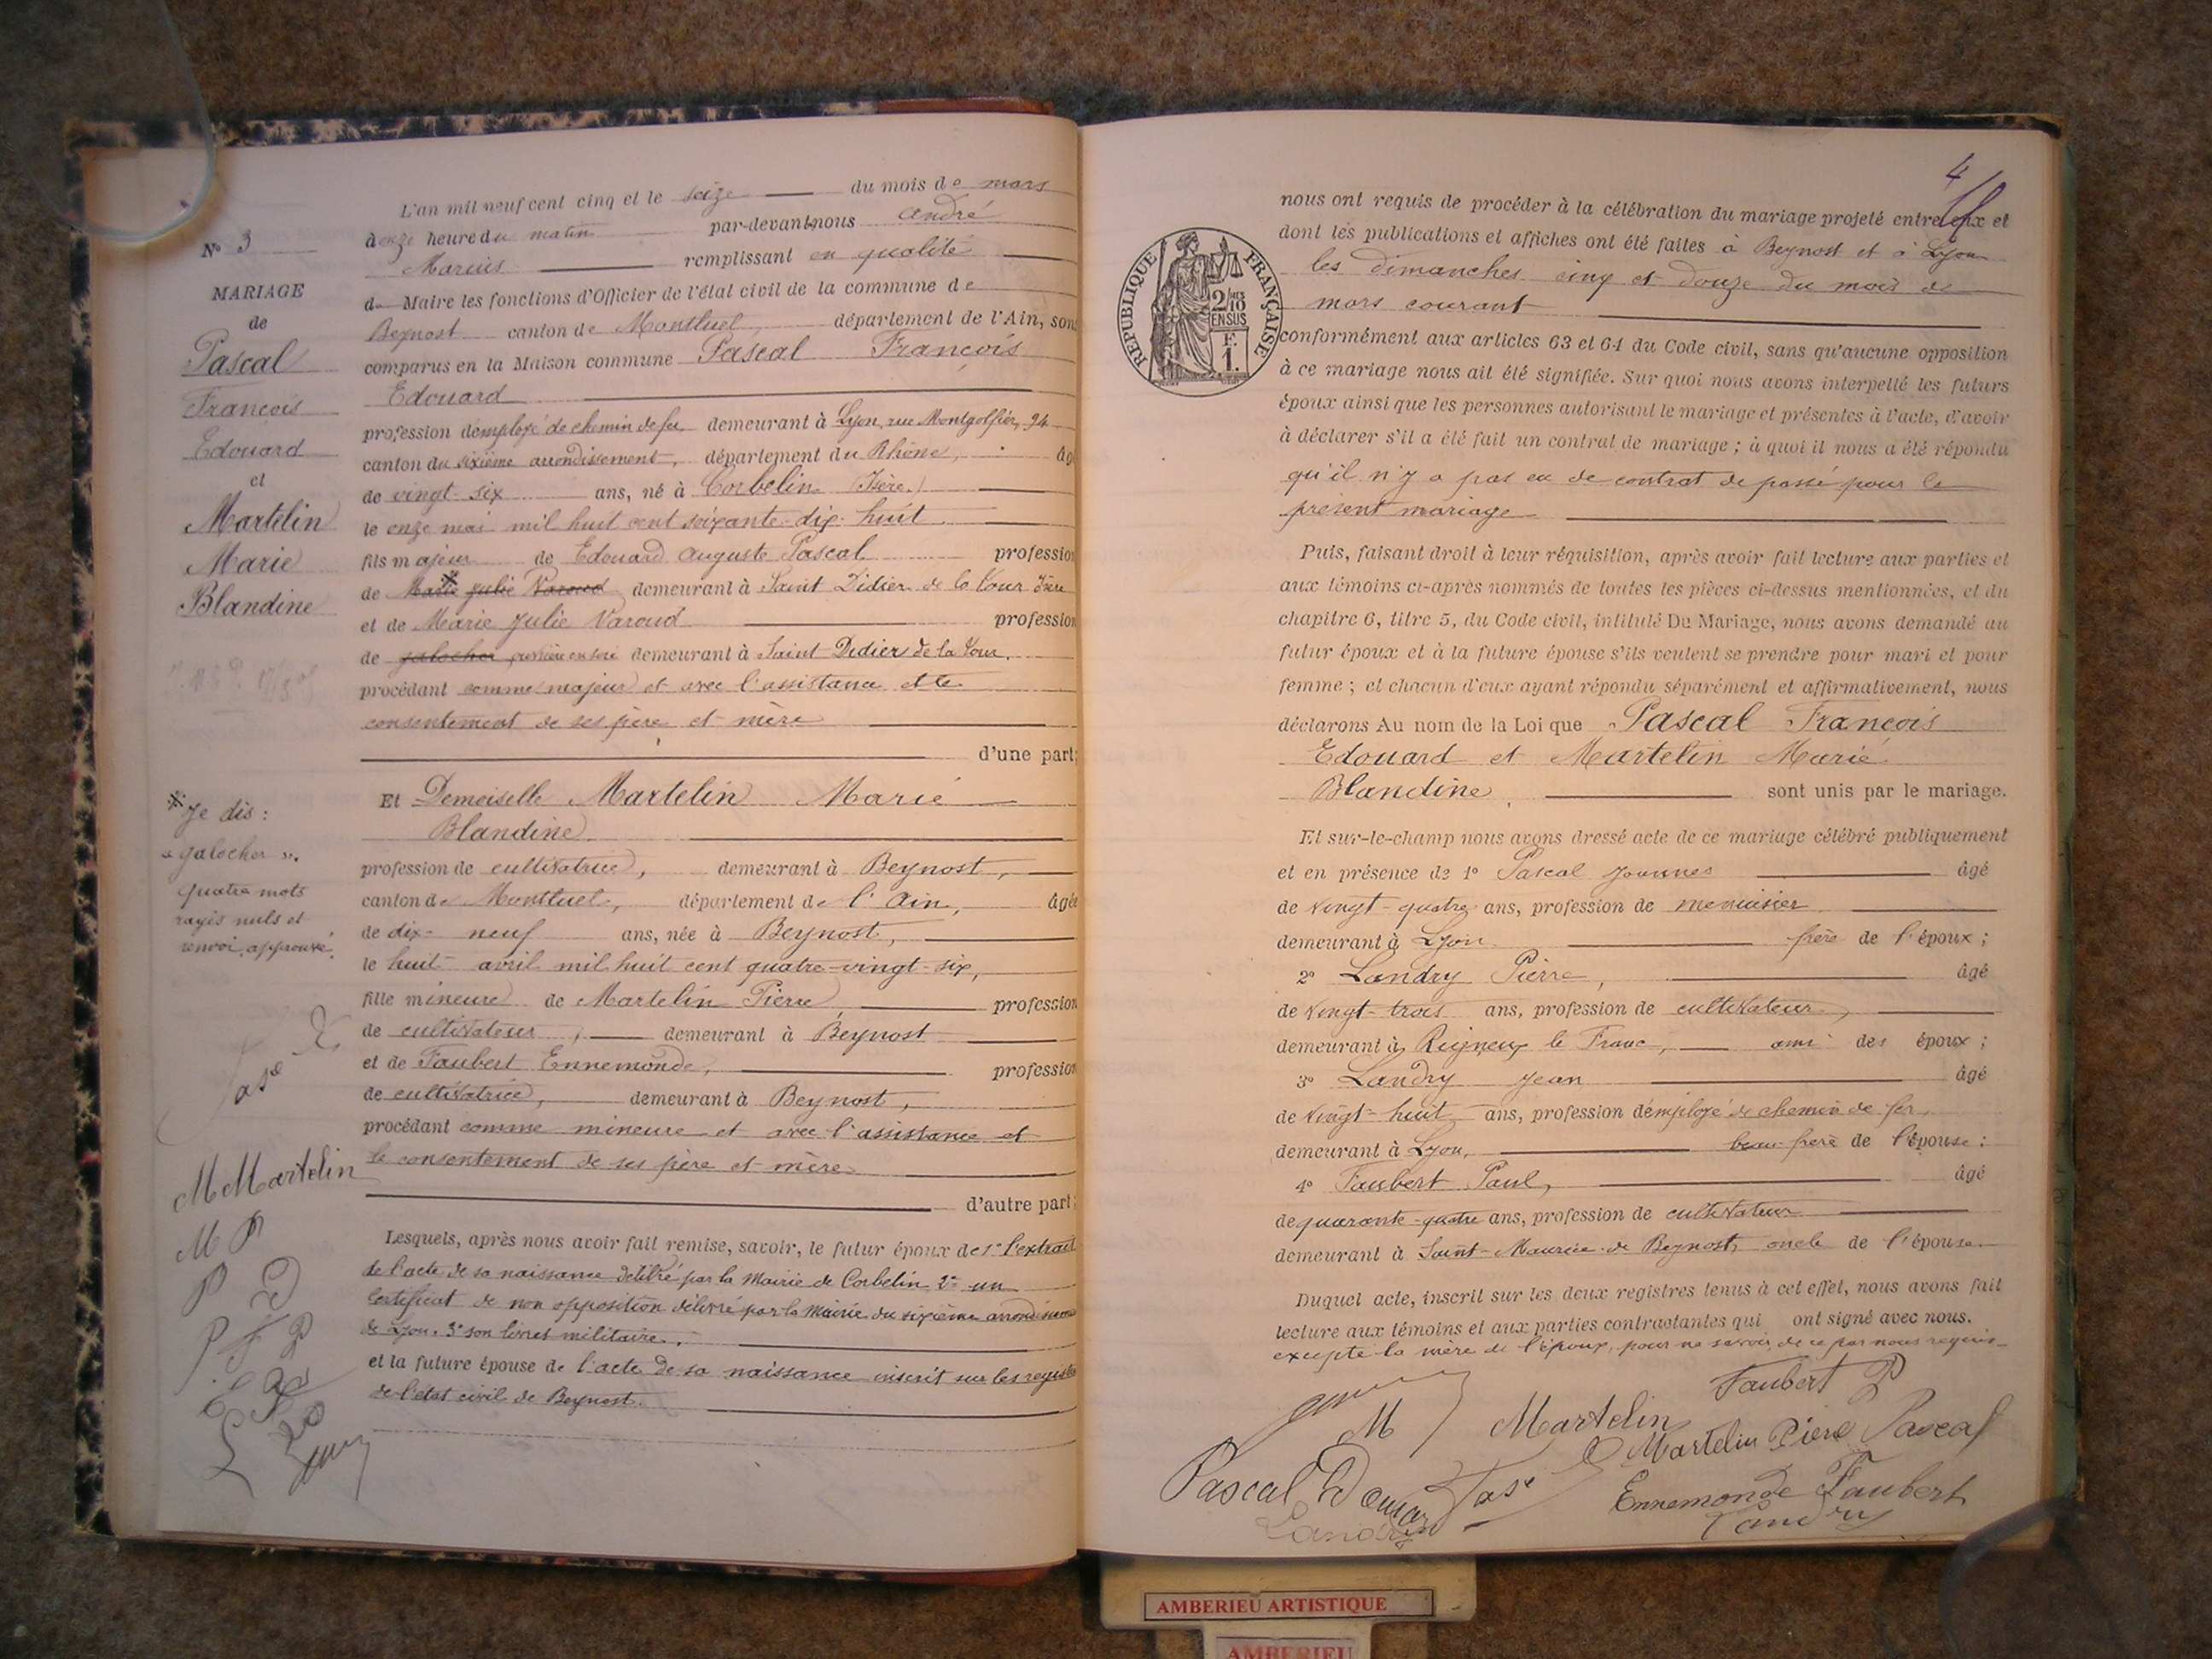 N° 3
MARIAGE
de
Pascal
François
Edouard
et
Martelin
Marie
Blandine
Je dis :
« galocher ».
quatre mots
rayés nuls et
renvoi approuvé.
M Martelin
M P
P
L'an mil neuf cent cinq et le seize du mois de mars
à onze heure du matin par-devant nous André
Marius remplissant en qualité
de Maire les fonctions d'Officier de l'état civil de la commune de
Beynost canton de Montluel, département de l'Ain, son
comparus en la Maison commune Pascal François
Edouard
profession d'employé de chemin de fer demeurant à Lyon, rue Montgolfier, 94
canton du sixième arrondissement, département du Rhône, âgé
de vingt-six ans, né à Corbelin (Isère)
le onze mai mil huit cent soixante-dix-huit
fils majeur de Edouard Auguste Pascal profession
de Marie Julie Varoud demeurant à Saint Didier de la Tour Isère
et de Marie Julie Varoud profession
de galocher demeurant à Saint-Didier de la Tour,
procédant comme majeur et avec l'assistance et le
consentement de ses père et mère
d'une part;
Et Demoiselle Martelin Marie
Blandine
profession de cultivatrice, demeurant à Beynost,
canton de Montluel, département de l'Ain, âgée
de dix-neuf ans, née à Beynost,
le huit avril mil huit cent quatre-vingt-six,
fille mineure de Martelin Pierre, profession
de cultivateur, demeurant à Beynost
et de Faubert Ennemonde, profession
de cultivatrice, demeurant à Beynost,
procédant comme mineure et avec l'assistance et
le consentement de ses père et mère
d'autre part;
Lesquels, après nous avoir fait remise, savoir, le futur époux de 1° l'extrait
de l'acte de sa naissance délivré par la Mairie de Corbelin 2° un
certificat de non opposition délivré par la Mairie du sixième arrondissement
de Lyon. 3° son livret militaire.
et la future épouse de l'acte de sa naissance inscrit sur les registres
de l'état civil de Beynost.
4
RÉPUBLIQUE FRANÇAISE
2/10
EN SUS
F.
1.
nous ont requis de procéder à la célébration du mariage projeté entre eux et
dont les publications et affiches ont été faites à Beynost et à Lyon
les dimanches cinq et douze du mois de
mars courant
conformément aux articles 63 et 64 du Code civil, sans qu'aucune opposition
à ce mariage nous ait été signifiée. Sur quoi nous avons interpellé les futurs
époux ainsi que les personnes autorisant le mariage et présentes à l'acte, d'avoir
à déclarer s'il a été fait un contrat de mariage ; à quoi il nous a été répondu
qu'il n'y a pas eu de contrat de passé pour le
présent mariage
Puis, faisant droit à leur réquisition, après avoir fait lecture aux parties et
aux témoins ci-après nommés de toutes les pièces ci-dessus mentionnées, et du
chapitre 6, titre 5, du Code civil, intitulé Du Mariage, nous avons demandé au
futur époux et à la future épouse s'ils veulent se prendre pour mari et pour
femme ; et chacun d'eux ayant répondu séparément et affirmativement, nous
déclarons Au nom de la Loi que Pascal François
Edouard et Martelin Marie
Blandine, sont unis par le mariage.
Et sur-le-champ nous avons dressé acte de ce mariage célébré publiquement
et en présence de 1° Pascal Joannes âgé
de vingt-quatre ans, profession de menuisier
demeurant à Lyon frère de l'époux ;
2° Landry Pierre, âgé
de vingt-trois ans, profession de cultivateur,
demeurant à Rigneux le Franc, ami des époux ;
3° Landry Jean âgé
de vingt-huit ans, profession d'employé de chemin de fer,
demeurant à Lyon, beau-frère de l'épouse ;
4° Faubert Paul, âgé
de quarante-quatre ans, profession de cultivateur
demeurant à Saint-Maurice-de Beynost, oncle de l'épouse.
Duquel acte, inscrit sur les deux registres tenus à cet effet, nous avons fait
lecture aux témoins et aux parties contractantes qui ont signé avec nous.
excepté la mère de l'époux, pour ne savoir, de ce par nous requis
Faubert P
M Martelin
Martelin Piere Pascal
Pascal Edouard
Ennemonde Faubert
Landry
Landry
AMBERIEU ARTISTIQUE
AMBERIEU